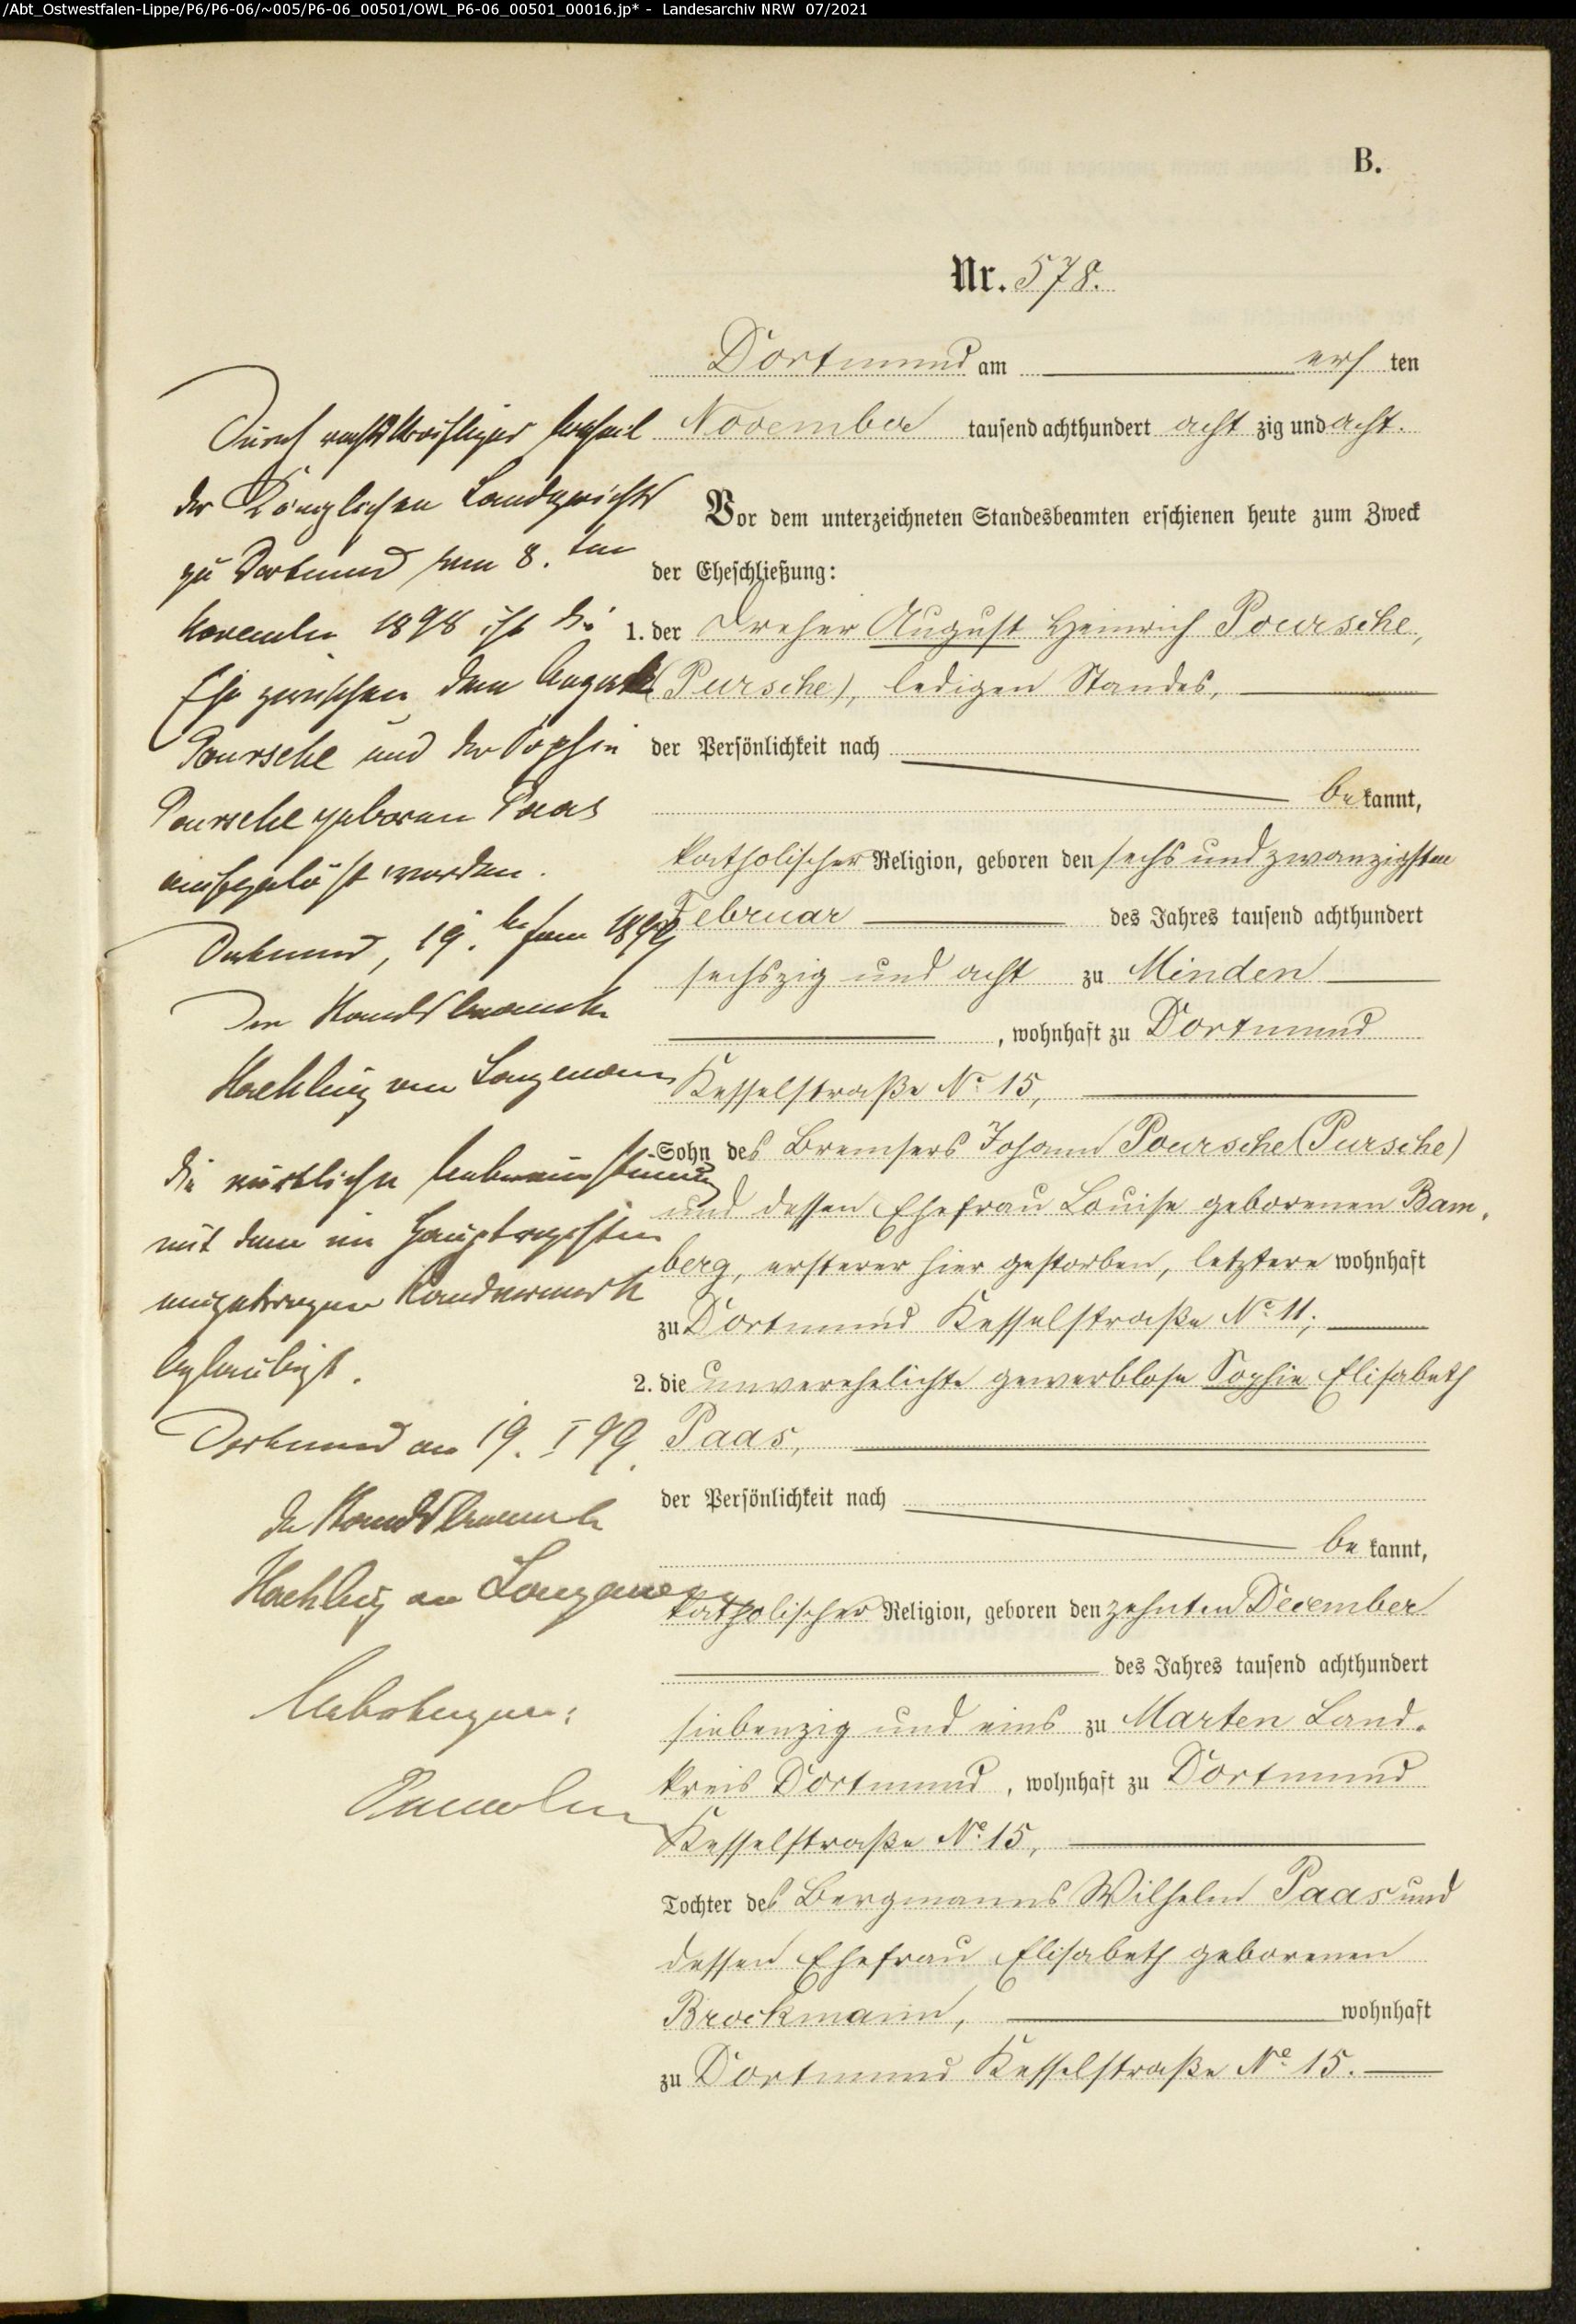 /Abt_Ostwestfalen-Lippe/P6/P6-06/~005/P6-06_00501/OWL_P6-06_00501_00016.jp* - Landesarchiv NRW 07/2021
B.
Nr. 578.
Dortmund am ersten
November tausend achthundert achtzig und acht.
Vor dem unterzeichneten Standesbeamten erschienen heute zum Zweck
der Eheschließung:
1. der Dreher August Heinrich Poursche,
(Pursche), ledigen Standes,
der Persönlichkeit nach
bekannt,
katholischer Religion, geboren den sechs und zwanzigsten
Februar des Jahres tausend achthundert
sechszig und acht zu Minden
, wohnhaft zu Dortmund
Kesselstraße No 15,
Sohn des Bremsers Johann Poursche (Pursche)
und dessen Ehefrau Louise geborenen Bam-
berg, ersterer hier gestorben, letztere wohnhaft
zu Dortmund Kesselstraße No 11;
2. die unverehelichte gewerblose Sophie Elisabeth
Paas,
der Persönlichkeit nach
bekannt,
katholischer Religion, geboren den zehnten December
des Jahres tausend achthundert
siebenzig und eins zu Marten Land-
kreis Dortmund, wohnhaft zu Dortmund
Kesselstraße No 15,
Tochter des Bergmanns Wilhelm Paas und
dessen Ehefrau Elisabeth geborenen
Brockmann, wohnhaft
zu Dortmund Kesselstraße No 15.
Durch rechtskräftiges Urtheil
des Königlichen Landgerichts
zu Dortmund vom 8. ten
November 1898 ist die
Ehe zwischen dem August
Poursche und der Sophie
Poursche geborenen Paas
aufgelöst worden.
Dortmund, 19. ten Jan 1899
Der Standesbeamte
Die wörtliche Uebereinstimmung
mit dem im Hauptregister
eingetragenen Randvermerk
beglaubigt.
Dortmund am 19. I 99.
Der Standesbeamte